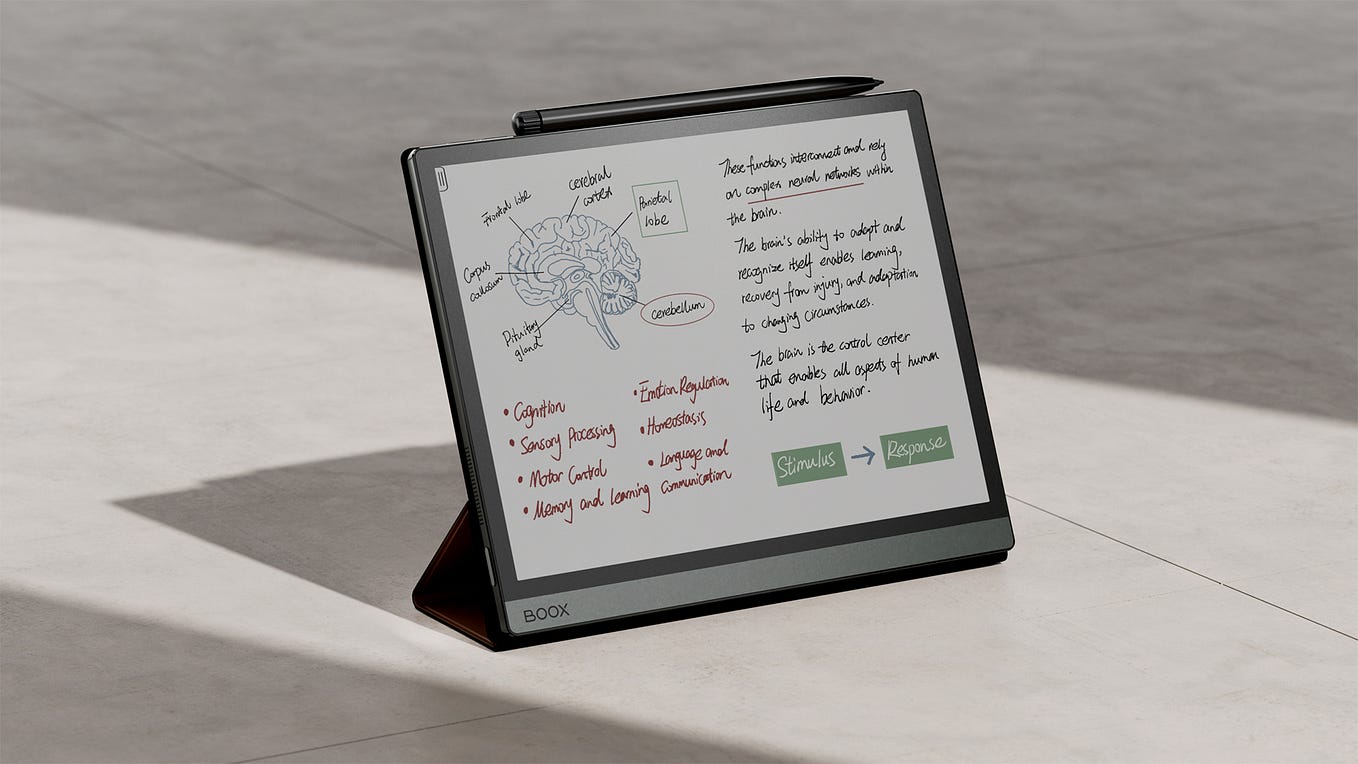 Frontal lobe
cerebral
cortex
Parietal
lobe
Corpus
callosum
Pituitary
gland
cerebellum
• Cognition
• Sensory Processing
• Motor Control
• Memory and Learning
• Emotion Regulation
• Homeostasis
• Language and
Communication
These functions interconnect and rely
on complex neural networks within
the brain.
The brain's ability to adapt and
recognize itself enables learning,
recovery from injury, and adaptation
to changing circumstances.
The brain is the control center
that enables all aspects of human
life and behavior.
Stimulus → Response
BOOX